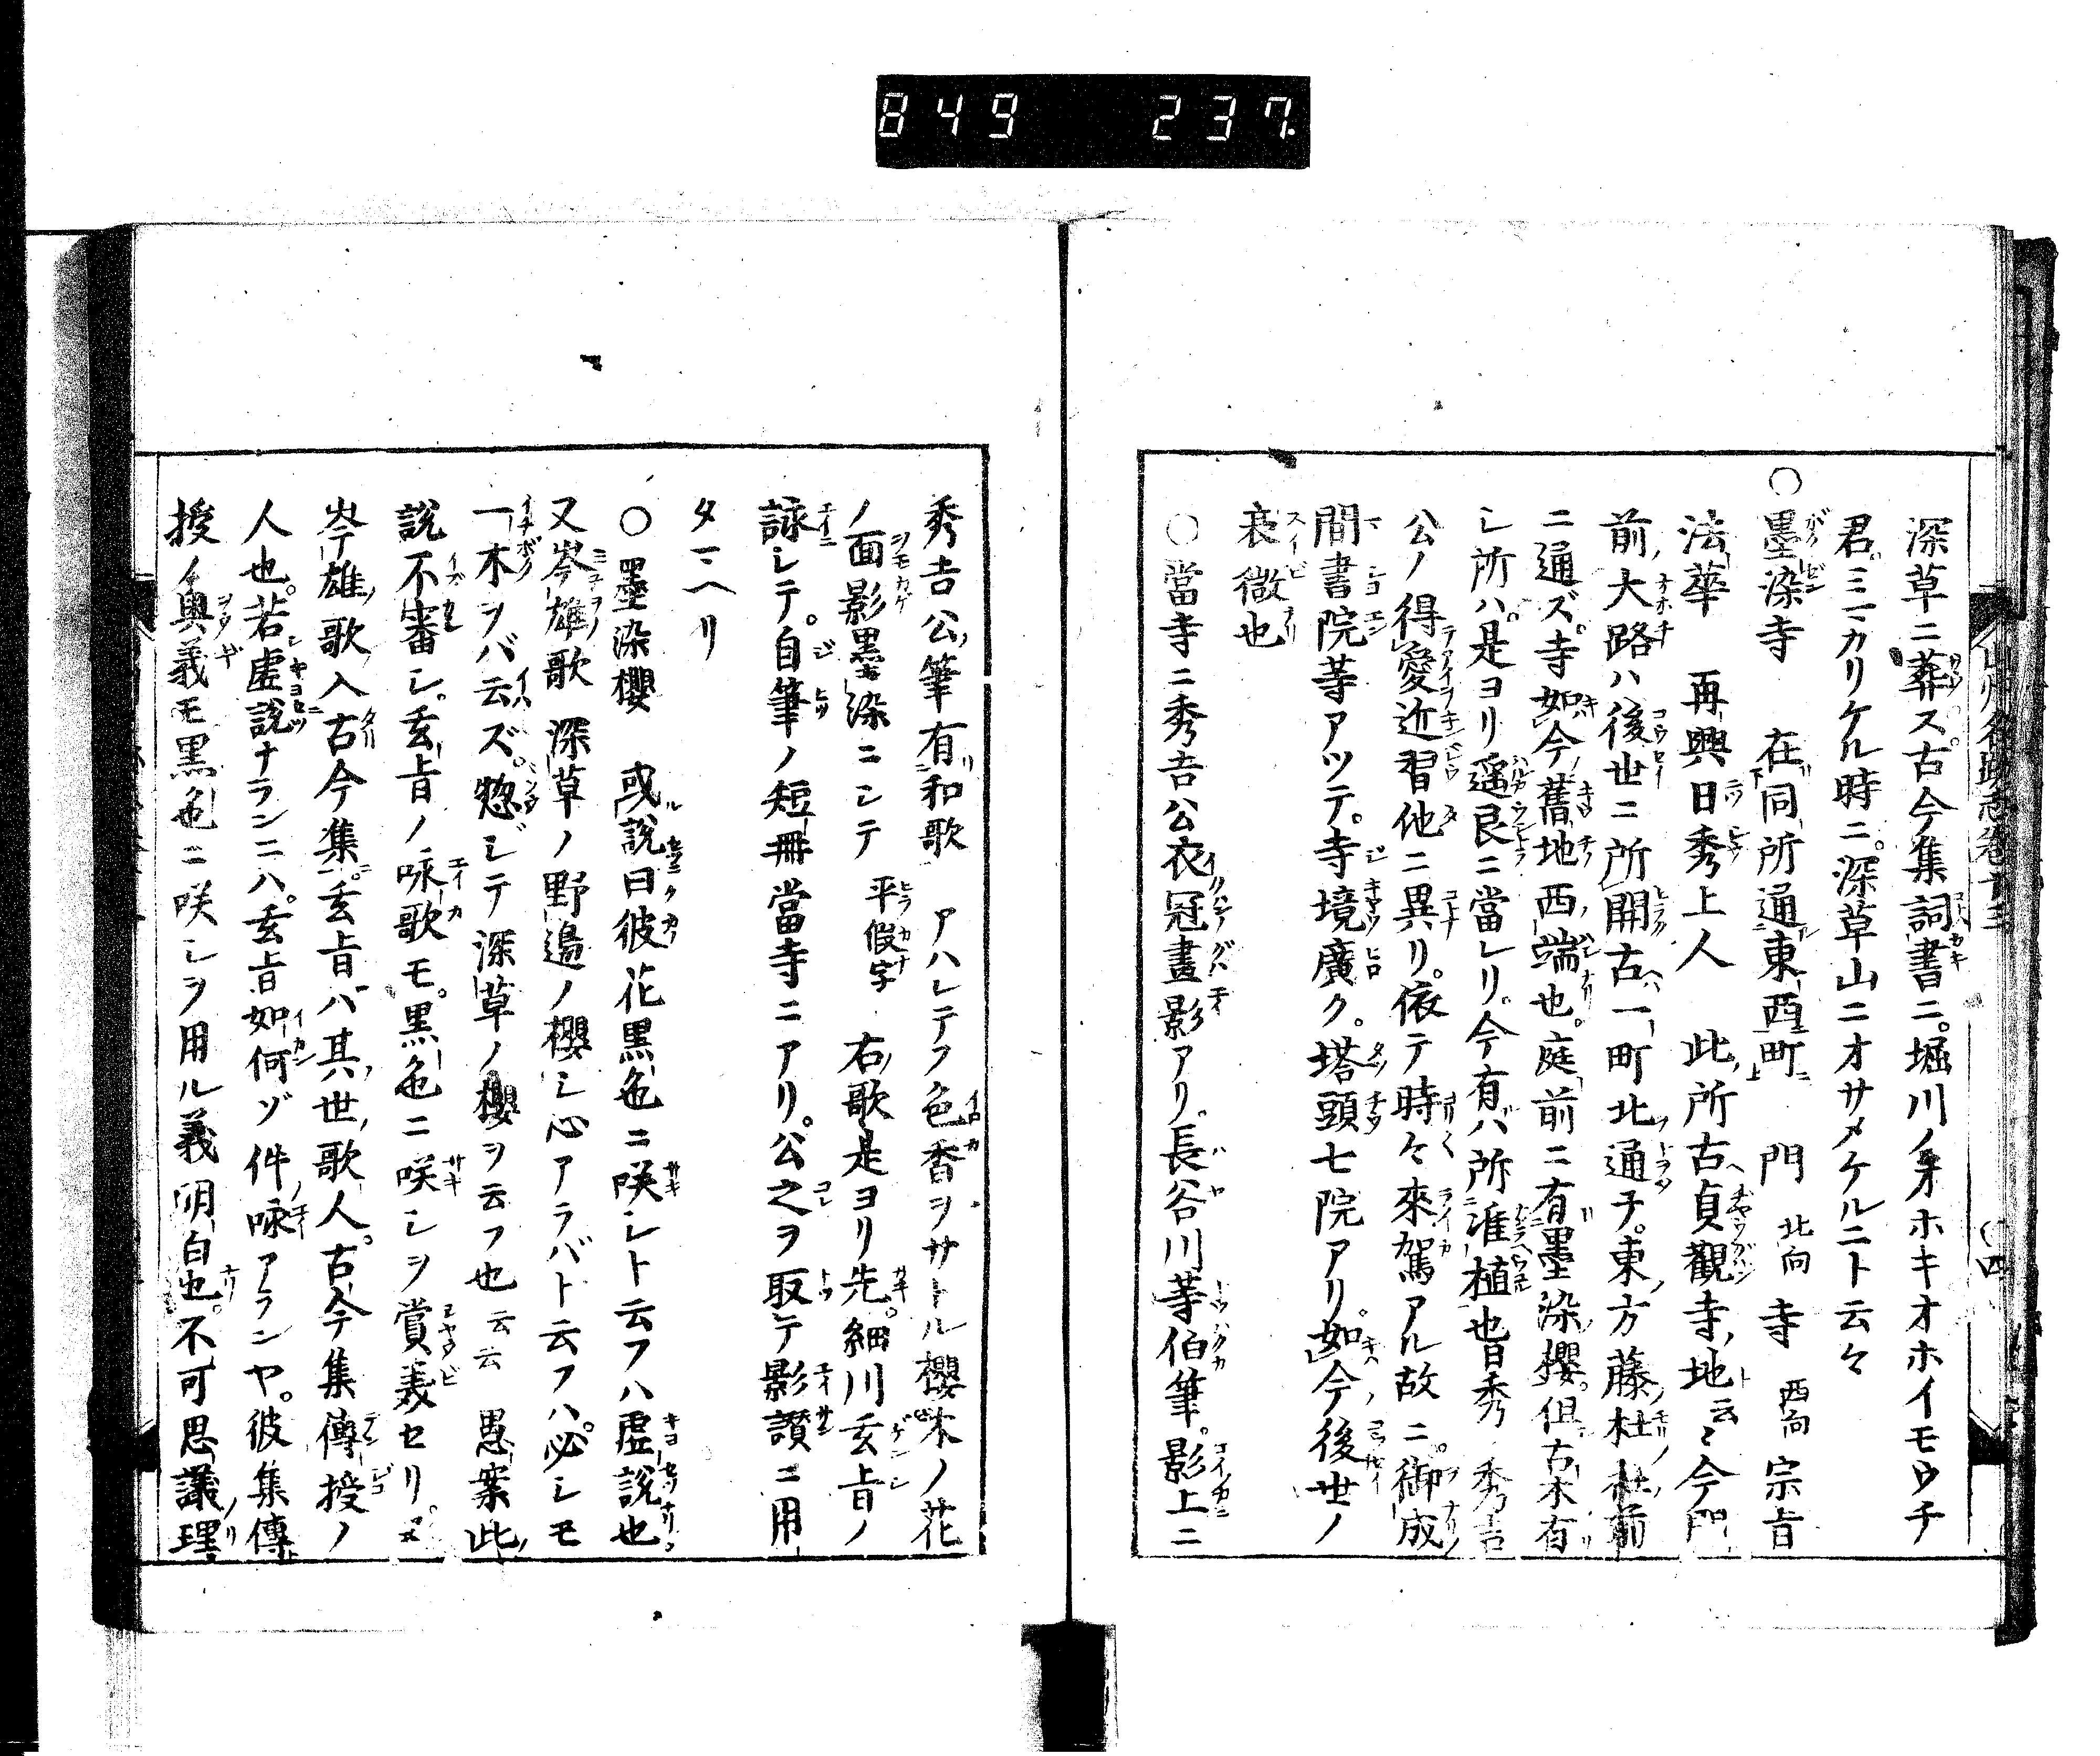 849 237
深草ニ葬ス古今集詞書ニ。堀川ノオホキオホイモウチ
君。ミマカリケル時ニ。深草山ニオサメケルニト云々
○墨染寺 在同所通東西町 門北向 寺西向 宗旨
法華 再興日秀上人 此所古貞觀寺ノ地云々今門
前ノ大路ハ後世ニ所開古ヘハ一町北通チ。東ノ方藤杜ノ杜前
ニ通ズ。寺如今ノ舊地西ノ端也。庭前ニ有墨染櫻。但古木有
シ所ハ。是ヨリ遥艮ニ當レリ。今有ハ所准植也日秀ハ秀吉
公ノ得愛近習他ニ異リ。依テ時々來駕アル故ニ。御成ノ
間書院等アツテ。寺境廣ク。塔頭七院アリ。如今ハ後世ノ
衰微也
○當寺ニ秀吉公衣冠畫影アリ。長谷川等伯筆。影上ニ
秀吉公ノ筆有和歌 アハレテフ色香ヲサトル櫻木ノ花
ノ面影墨染ニシテ 平假字 右ノ歌是ヨリ先。細川玄旨ノ
詠シテ。自筆ノ短冊當寺ニアリ。公之ヲ取テ影讃ニ用
タマヘリ
○墨染櫻 或說曰彼花黒色ニ咲シト云フハ虚說也
又岑雄ノ歌 深草ノ野邉ノ櫻シ心アラバト云フハ。必シモ
一木ヲバ云ズ。惣ジテ深草ノ櫻ヲ云フ也云云 愚案此ノ
說不審シ。玄旨ノ咏歌モ。黒色ニ咲シヲ賞義セリ。又
岑雄ノ歌入古今集ニ。玄旨ハ其ノ世ノ歌人。古今集傳授ノ
人也。若虚說ナランニハ。玄旨如何ゾ件ノ咏アランヤ。彼集傳
授ノ奥義モ黒色ニ咲シヲ用ル義明白也。不可思議ノ理